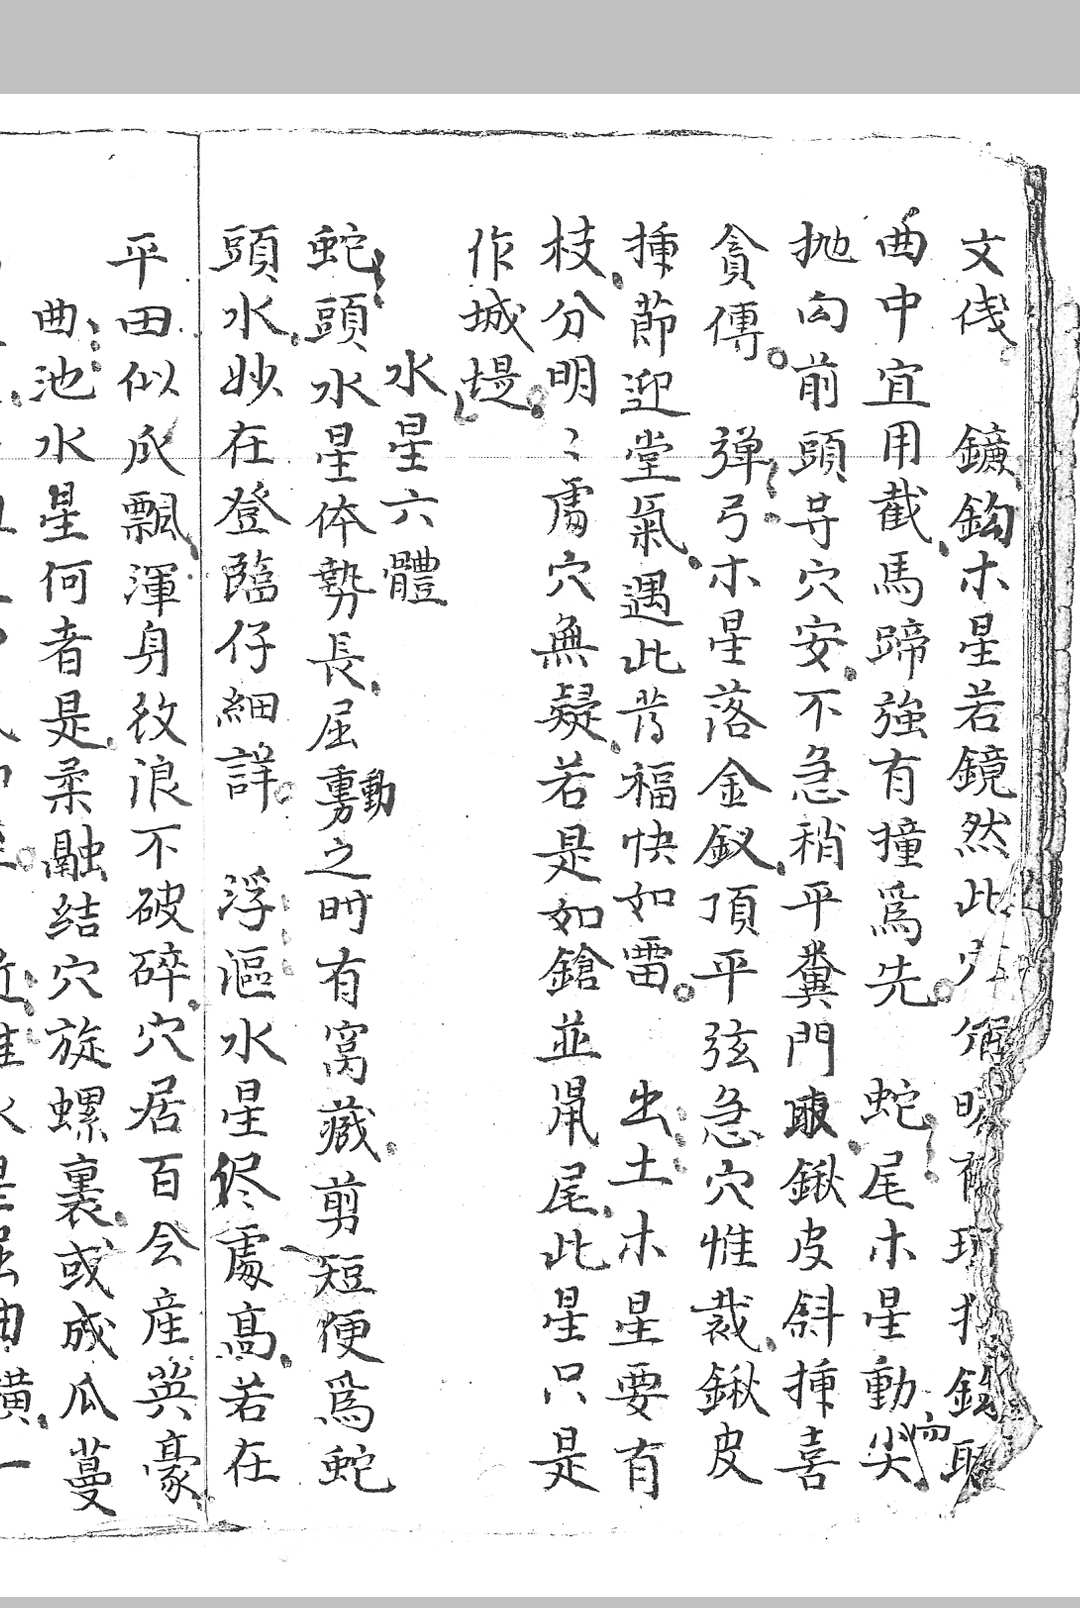 文伐 鐮鈎木星若鏡然此穴
曲中宜用截馬蹄強有撞為先 蛇尾木星動尖而
抛向前頭导穴安不急稍平糞門取鍬皮斜揷喜
貪傳 弹弓木星落金釵頂平弦急穴惟裁鍬皮
揷莭迎堂氣遇此誇福快如雷 出土木星要有
枝分明〻處穴無疑若是如鎗並鼡尾此星只是
作城堤
水星六體
蛇頭水星体勢長屈動之时有窩藏剪短便爲蛇
頭水妙在登臨仔細詳 浮漚水星侭處高若在
平田似瓜飄渾身紋浪不破碎穴居百会産英豪
曲池水星何者是柔融结穴旋螺裏或成瓜蔓